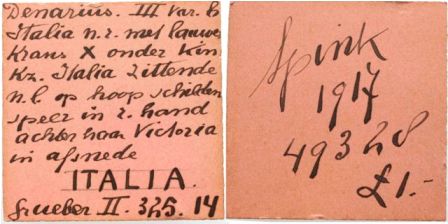 Denarius. III var. b
Italia n. r. met lauwer
krans X onder kin
Kz. Italia zittende
n. l. op hoop schilden
speer in r. hand
achter haar Victoria
in afsnede
ITALIA.
Grueber II. 325. 14
Spink
1917
49328
£1.-